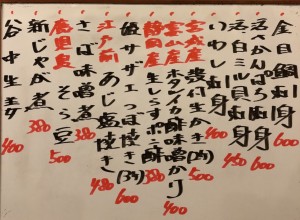 金目鯛刺身 600
活かんぱち刺身 600
活白ミル貝刺身 450
いわし刺身 400
宮城産 殻付生かき(2ヶ) 500
富山産 ホタルイカ酢味噌かけ 400
静岡産 生しらすポン酢 380
姫サザエつぼ焼き(3ヶ) 600
江戸前 あじ塩焼き 480
さば味噌煮 500
鹿児島 そら豆 500
新じゃが煮 380
谷中生姜 400